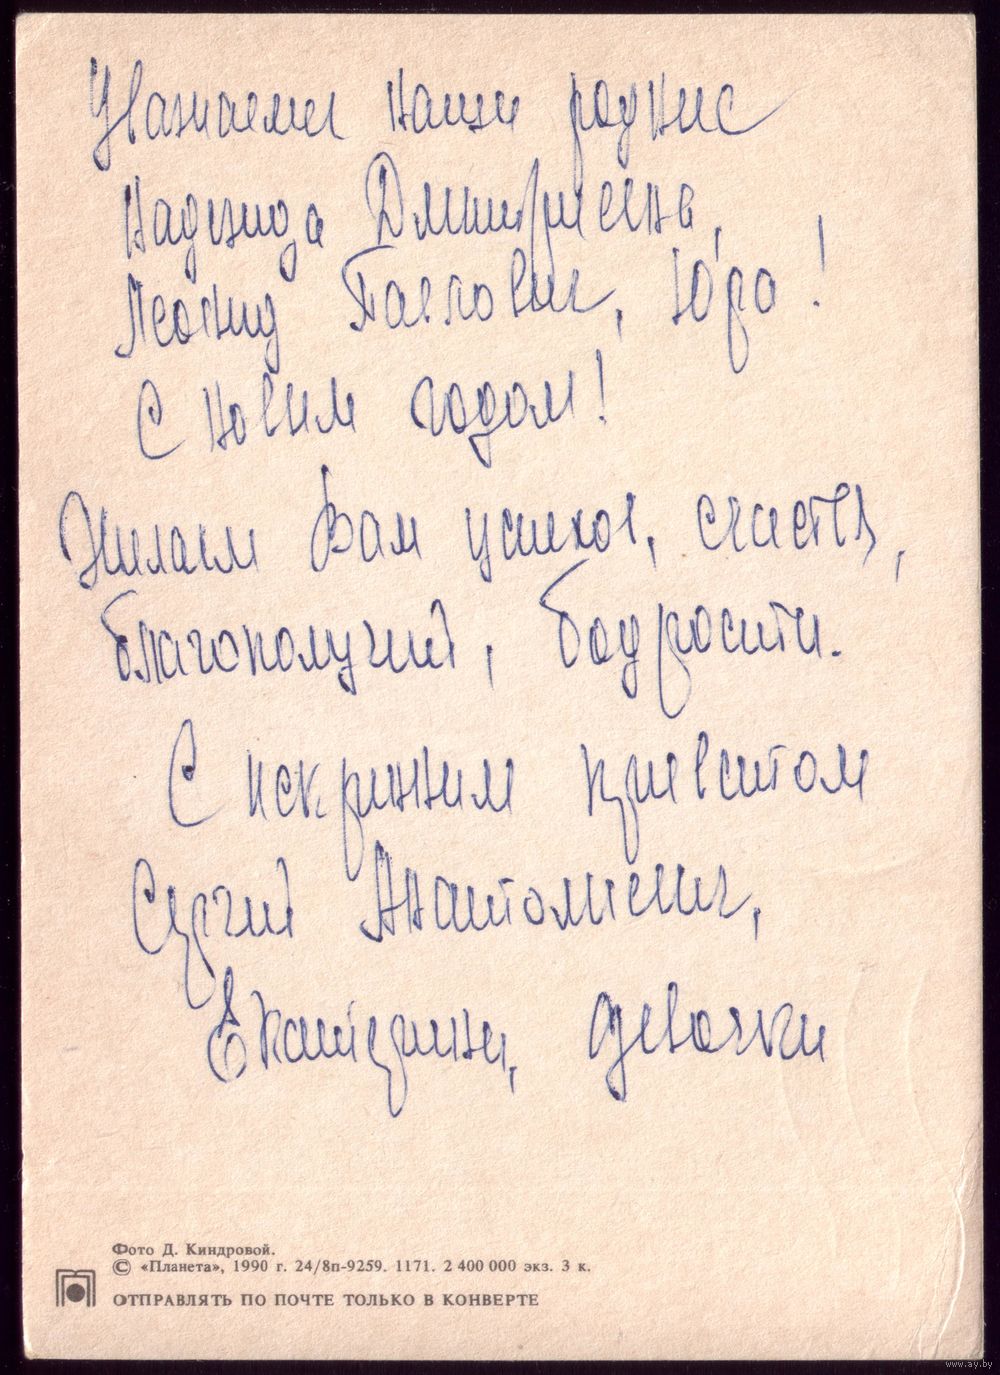 Уважаемые наши родные
Надежда Дмитриевна,
Леонид Павлович, Юра!
С Новым годом!
Желаем Вам успехов, счастья,
благополучия, бодрости.
С искренним приветом
Сергей Анатолиевич,
Екатерина, девочки
Фото Д. Киндровой.
© «Планета», 1990 г. 24/8п-9259. 1171. 2 400 000 экз. 3 к.
ОТПРАВЛЯТЬ ПО ПОЧТЕ ТОЛЬКО В КОНВЕРТЕ
www.ay.by